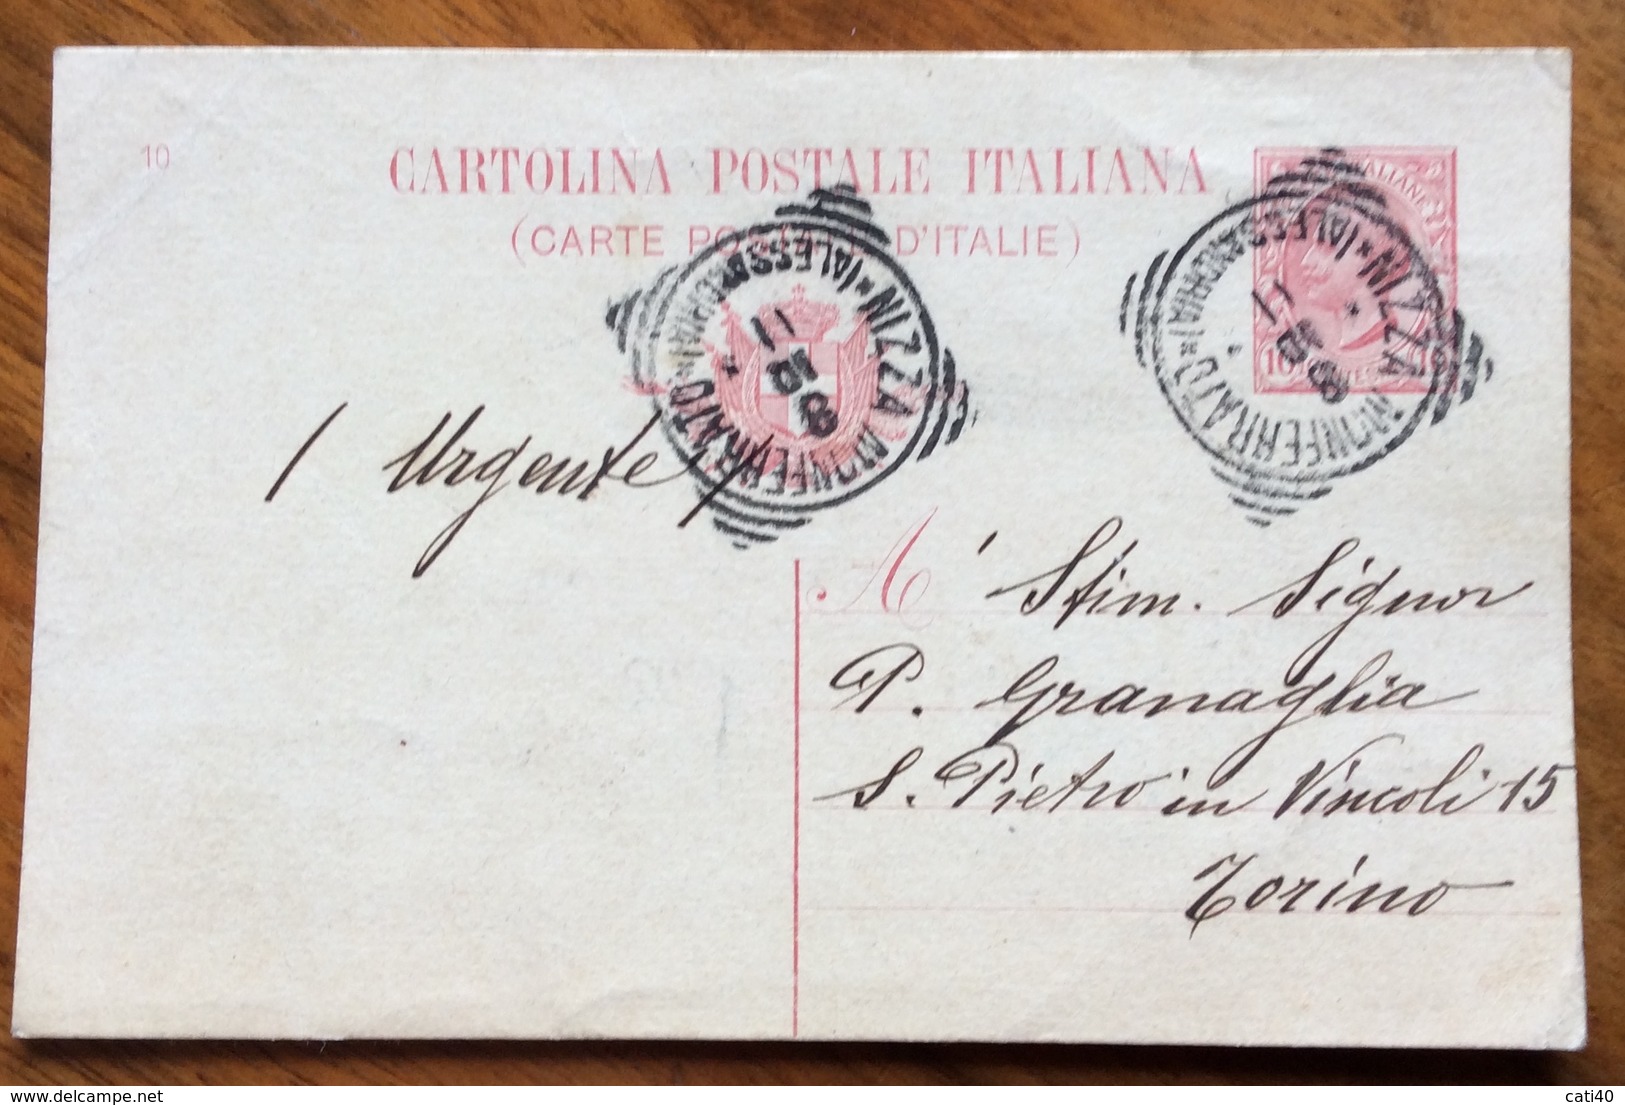 10
CARTOLINA POSTALE ITALIANA
(CARTE POSTALE D'ITALIE)
NIZZA MONFERRATO
*(ALESSANDRIA)*
8 10 11
NIZZA MONFERRATO
*(ALESSANDRIA)*
8 10 11
/ Urgente /
A Stim. Signor
P. Granaglia
S. Pietro in Vincoli 15
Torino
cati40